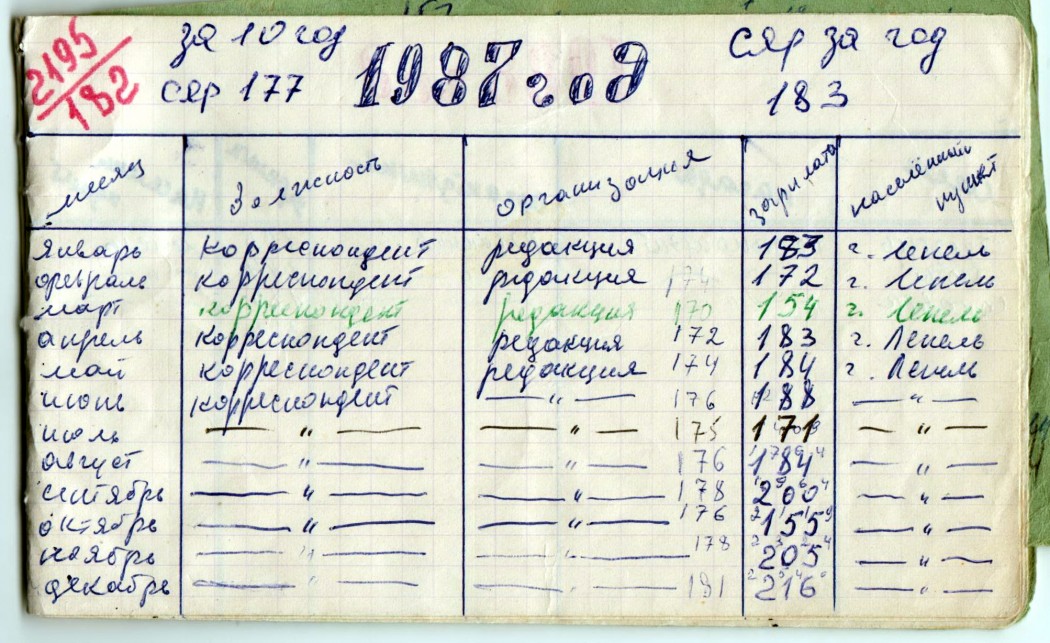 2195
182
за 10 год
сяр 177
1987 год
сяр за год
183
месяц должность организация зарплата населённый пункт
январь корреспондент редакция 183 г. Лепель
февраль корреспондент редакция 174 172 г. Лепель
март корреспондент редакция 170 154 г. Лепель
апрель корреспондент редакция 172 183 г. Лепель
май корреспондент редакция 174 184 г. Лепель
июнь корреспондент — " — 176 188 — " —
июль — " — — " — 175 171 — " —
август — " — — " — 176 184 — " —
сентябрь — " — — " — 178 200 — " —
октябрь — " — — " — 176 155 — " —
ноябрь — " — — " — 178 205 — " —
декабрь — " — — " — 181 216 — " —